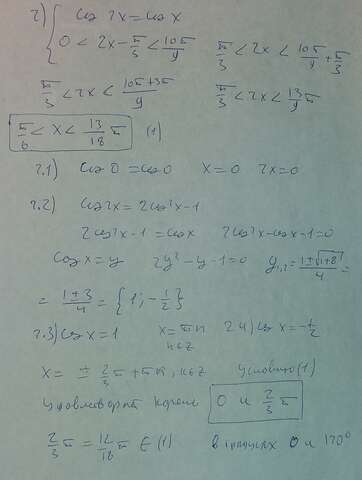 2) { cos 2x = cos x
0 < 2x - π/3 < 10π/9   π/3 < 2x < 10π/9 + π/3
π/3 < 2x < (10π+3π)/9   π/3 < 2x < 13/9 π
π/6 < x < 13/18 π   (1)
2.1) cos 0 = cos 0   x = 0   2x = 0
2.2) cos 2x = 2cos²x - 1
2cos²x - 1 = cos x   2cos²x - cos x - 1 = 0
cos x = y   2y² - y - 1 = 0   y₁,₂ = (1 ± √(1+8))/4 =
= (1 ± 3)/4 = {1; -1/2}
2.3) cos x = 1   x = πn   n∈Z   2.4) cos x = -1/2
x = ± 2/3 π + πn, n∈Z   условию (1)
удовлетворят корень 0 и 2/3 π
2/3 π = 12/18 π ∈ (1)   в градусах 0 и 120°